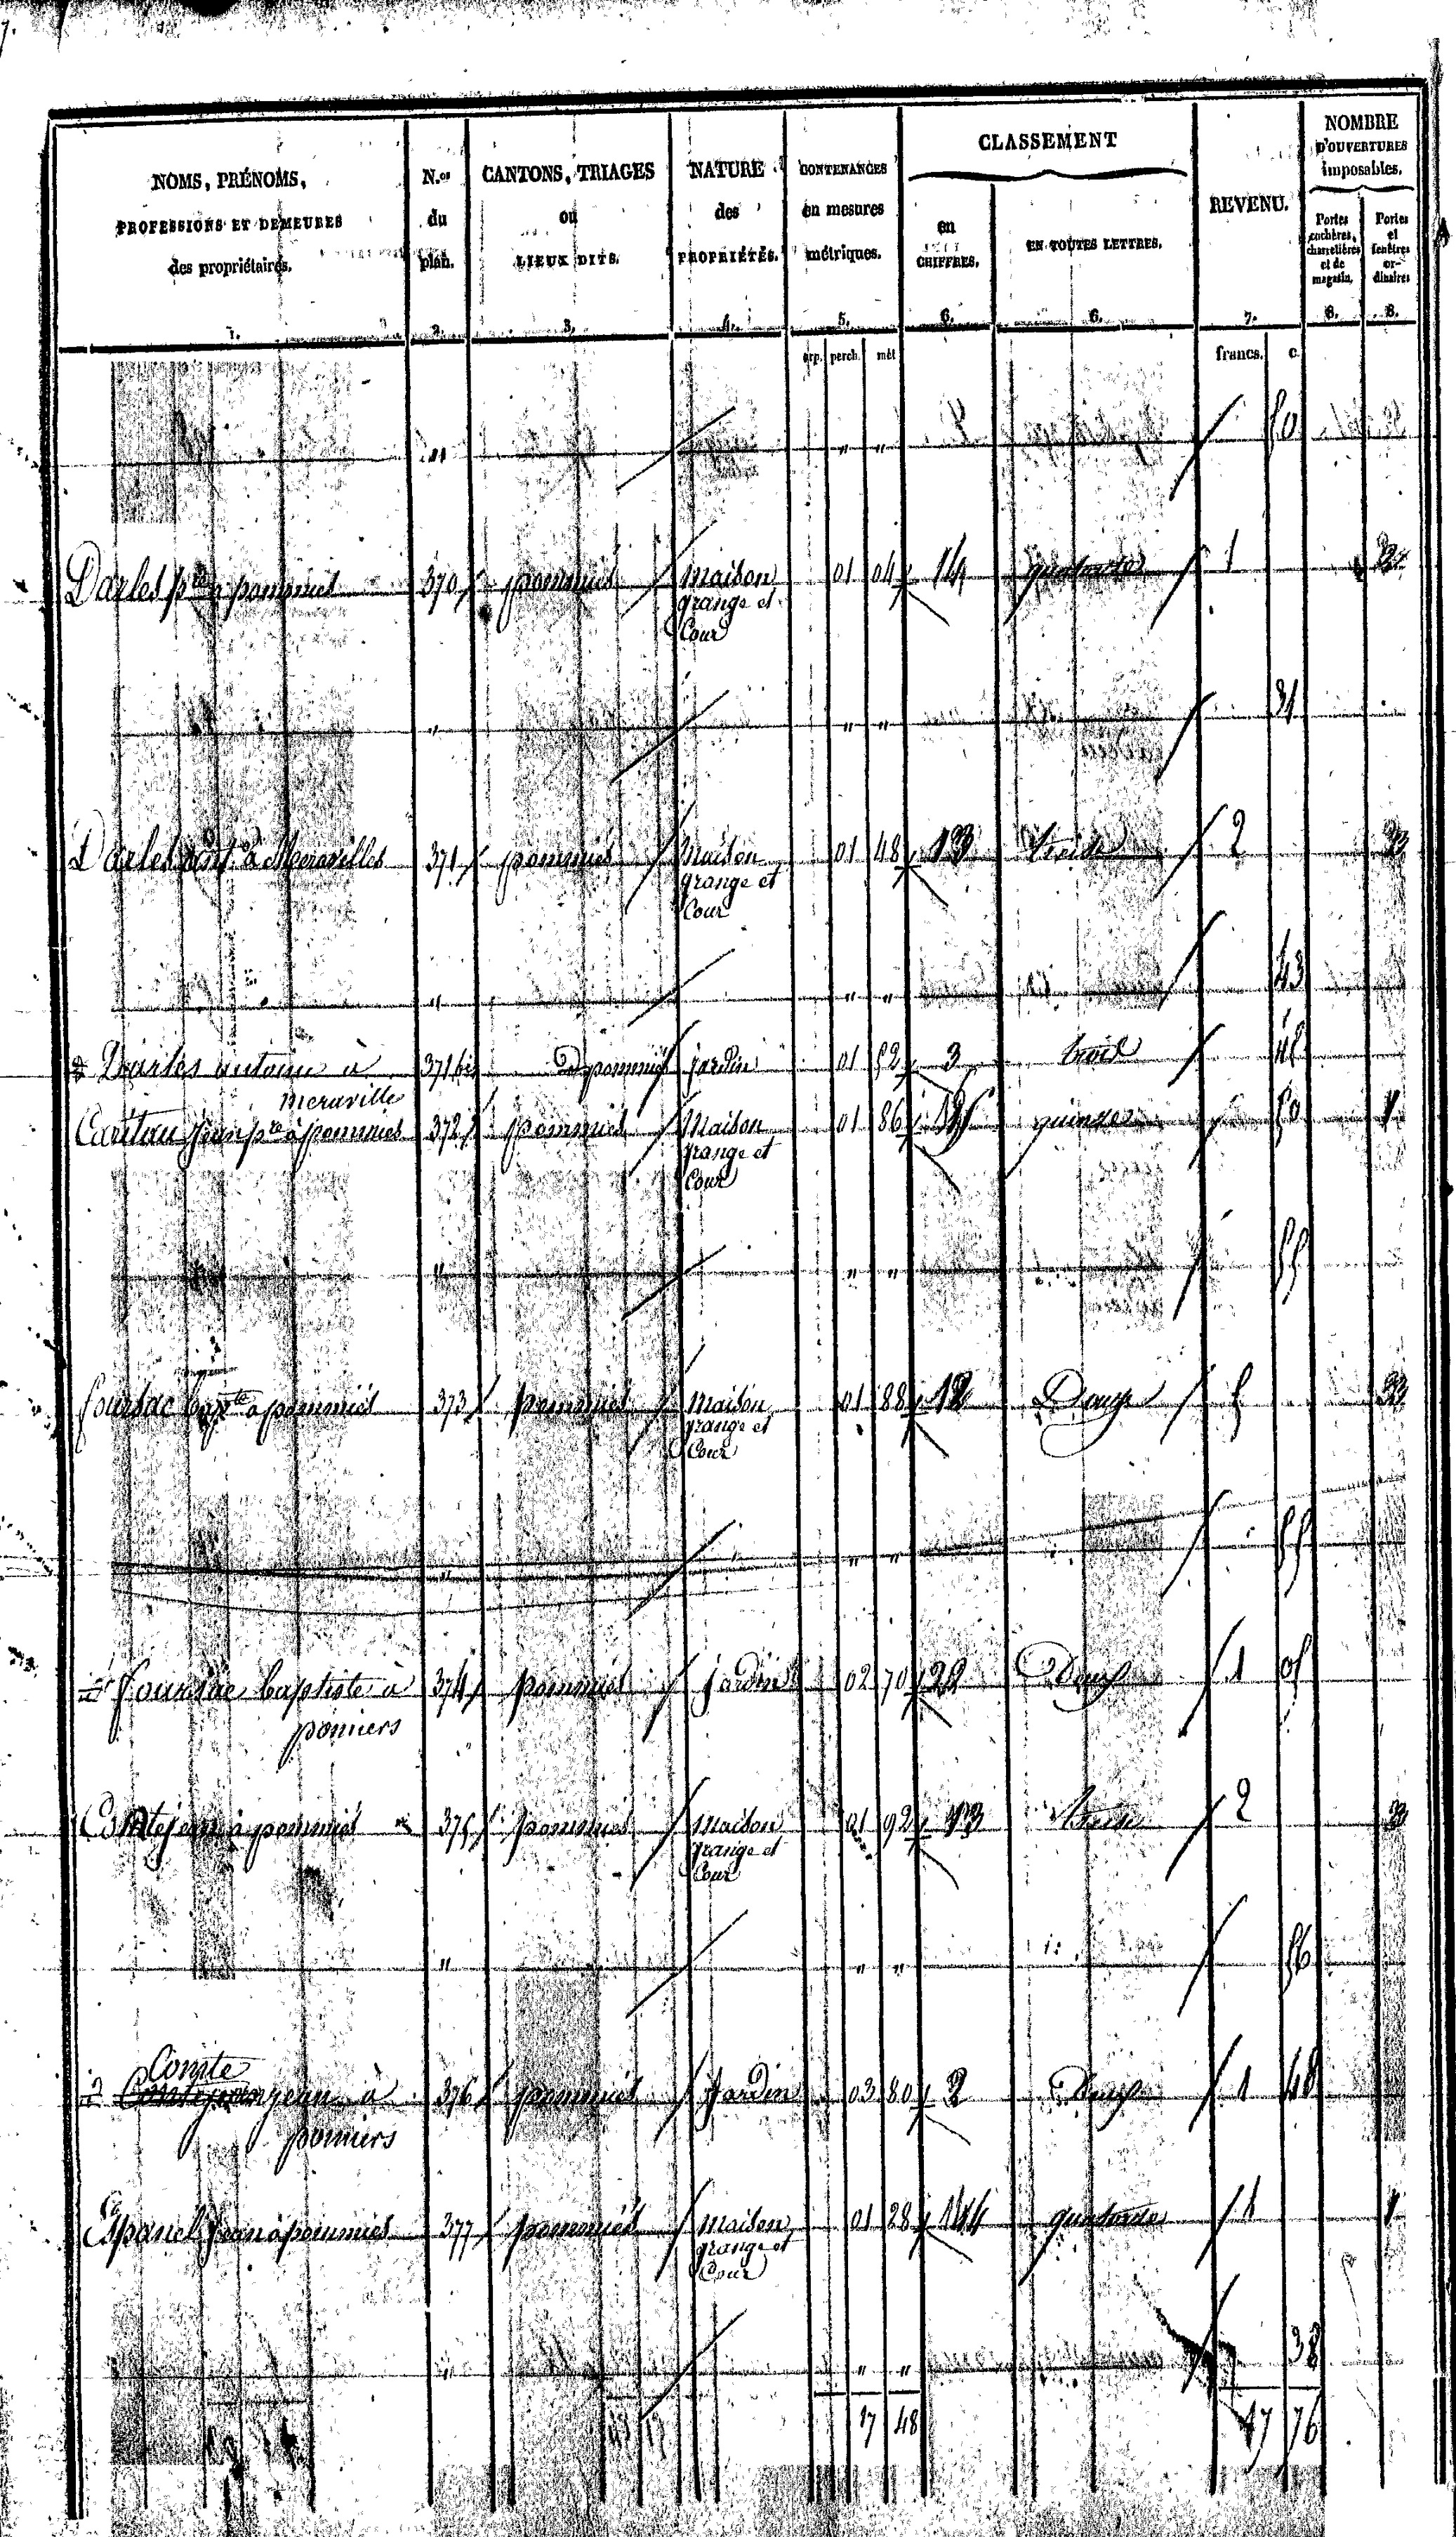 NOMS, PRÉNOMS, PROFESSIONS ET DEMEURES des propriétaires. 1.
N.os du plan. 2.
CANTONS, TRIAGES ou LIEUX DITS. 3.
NATURE des PROPRIÉTÉS. 4.
CONTENANCES en mesures métriques. 5.
CLASSEMENT
en CHIFFRES. 6.
EN TOUTES LETTRES. 6.
REVENU. 7.
NOMBRE D'OUVERTURES imposables.
Portes cochères, charretières et de magasin. 8.
Portes et fenêtres ordinaires 8.
arp. perch. mèt francs. c.
" " " 50
Darles pre à pommiés 370 pommiés Maison 01 04 14 quatorze 1
grange et
Cour
" " " 31
Darles à 371 pommiés Maison 01 48 13 2
grange et
Cour
" " " 43
Darles antoine à 371 bis pommiés jardin 01 52 3 trois 48
meraville
jean pre à pommiés 372 pommiés Maison 01 86 15 quinze 50 1
grange et
Cour
" " " 55
foursac bapte à pommiés 373 pommiés Maison 01 88 12 Douze 5
grange et
Cour
" " " 55
foursac baptiste à 374 pommiés jardin 02 70 Deux 1 05
pomiers
à pommiés 375 pommiés Maison 01 92 13 2
grange et
Cour
" " " 56
Comte
jean à 376 pommiés Jardin 03 80 2 Deux 1 48
pomiers
Espanel Jean à pommiés 377 pommiés Maison 01 28 14 quatorze 1 1
grange et
Cour
" " " 38
17 48 17 76